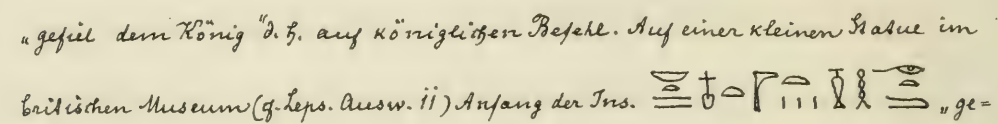 „gefiel dem König“ d. h. auf königlichen Befehl. Auf einer kleinen Statue im
britischen Museum (cf. Leps. Ausw. 11) Anfang der Ins. „ge=